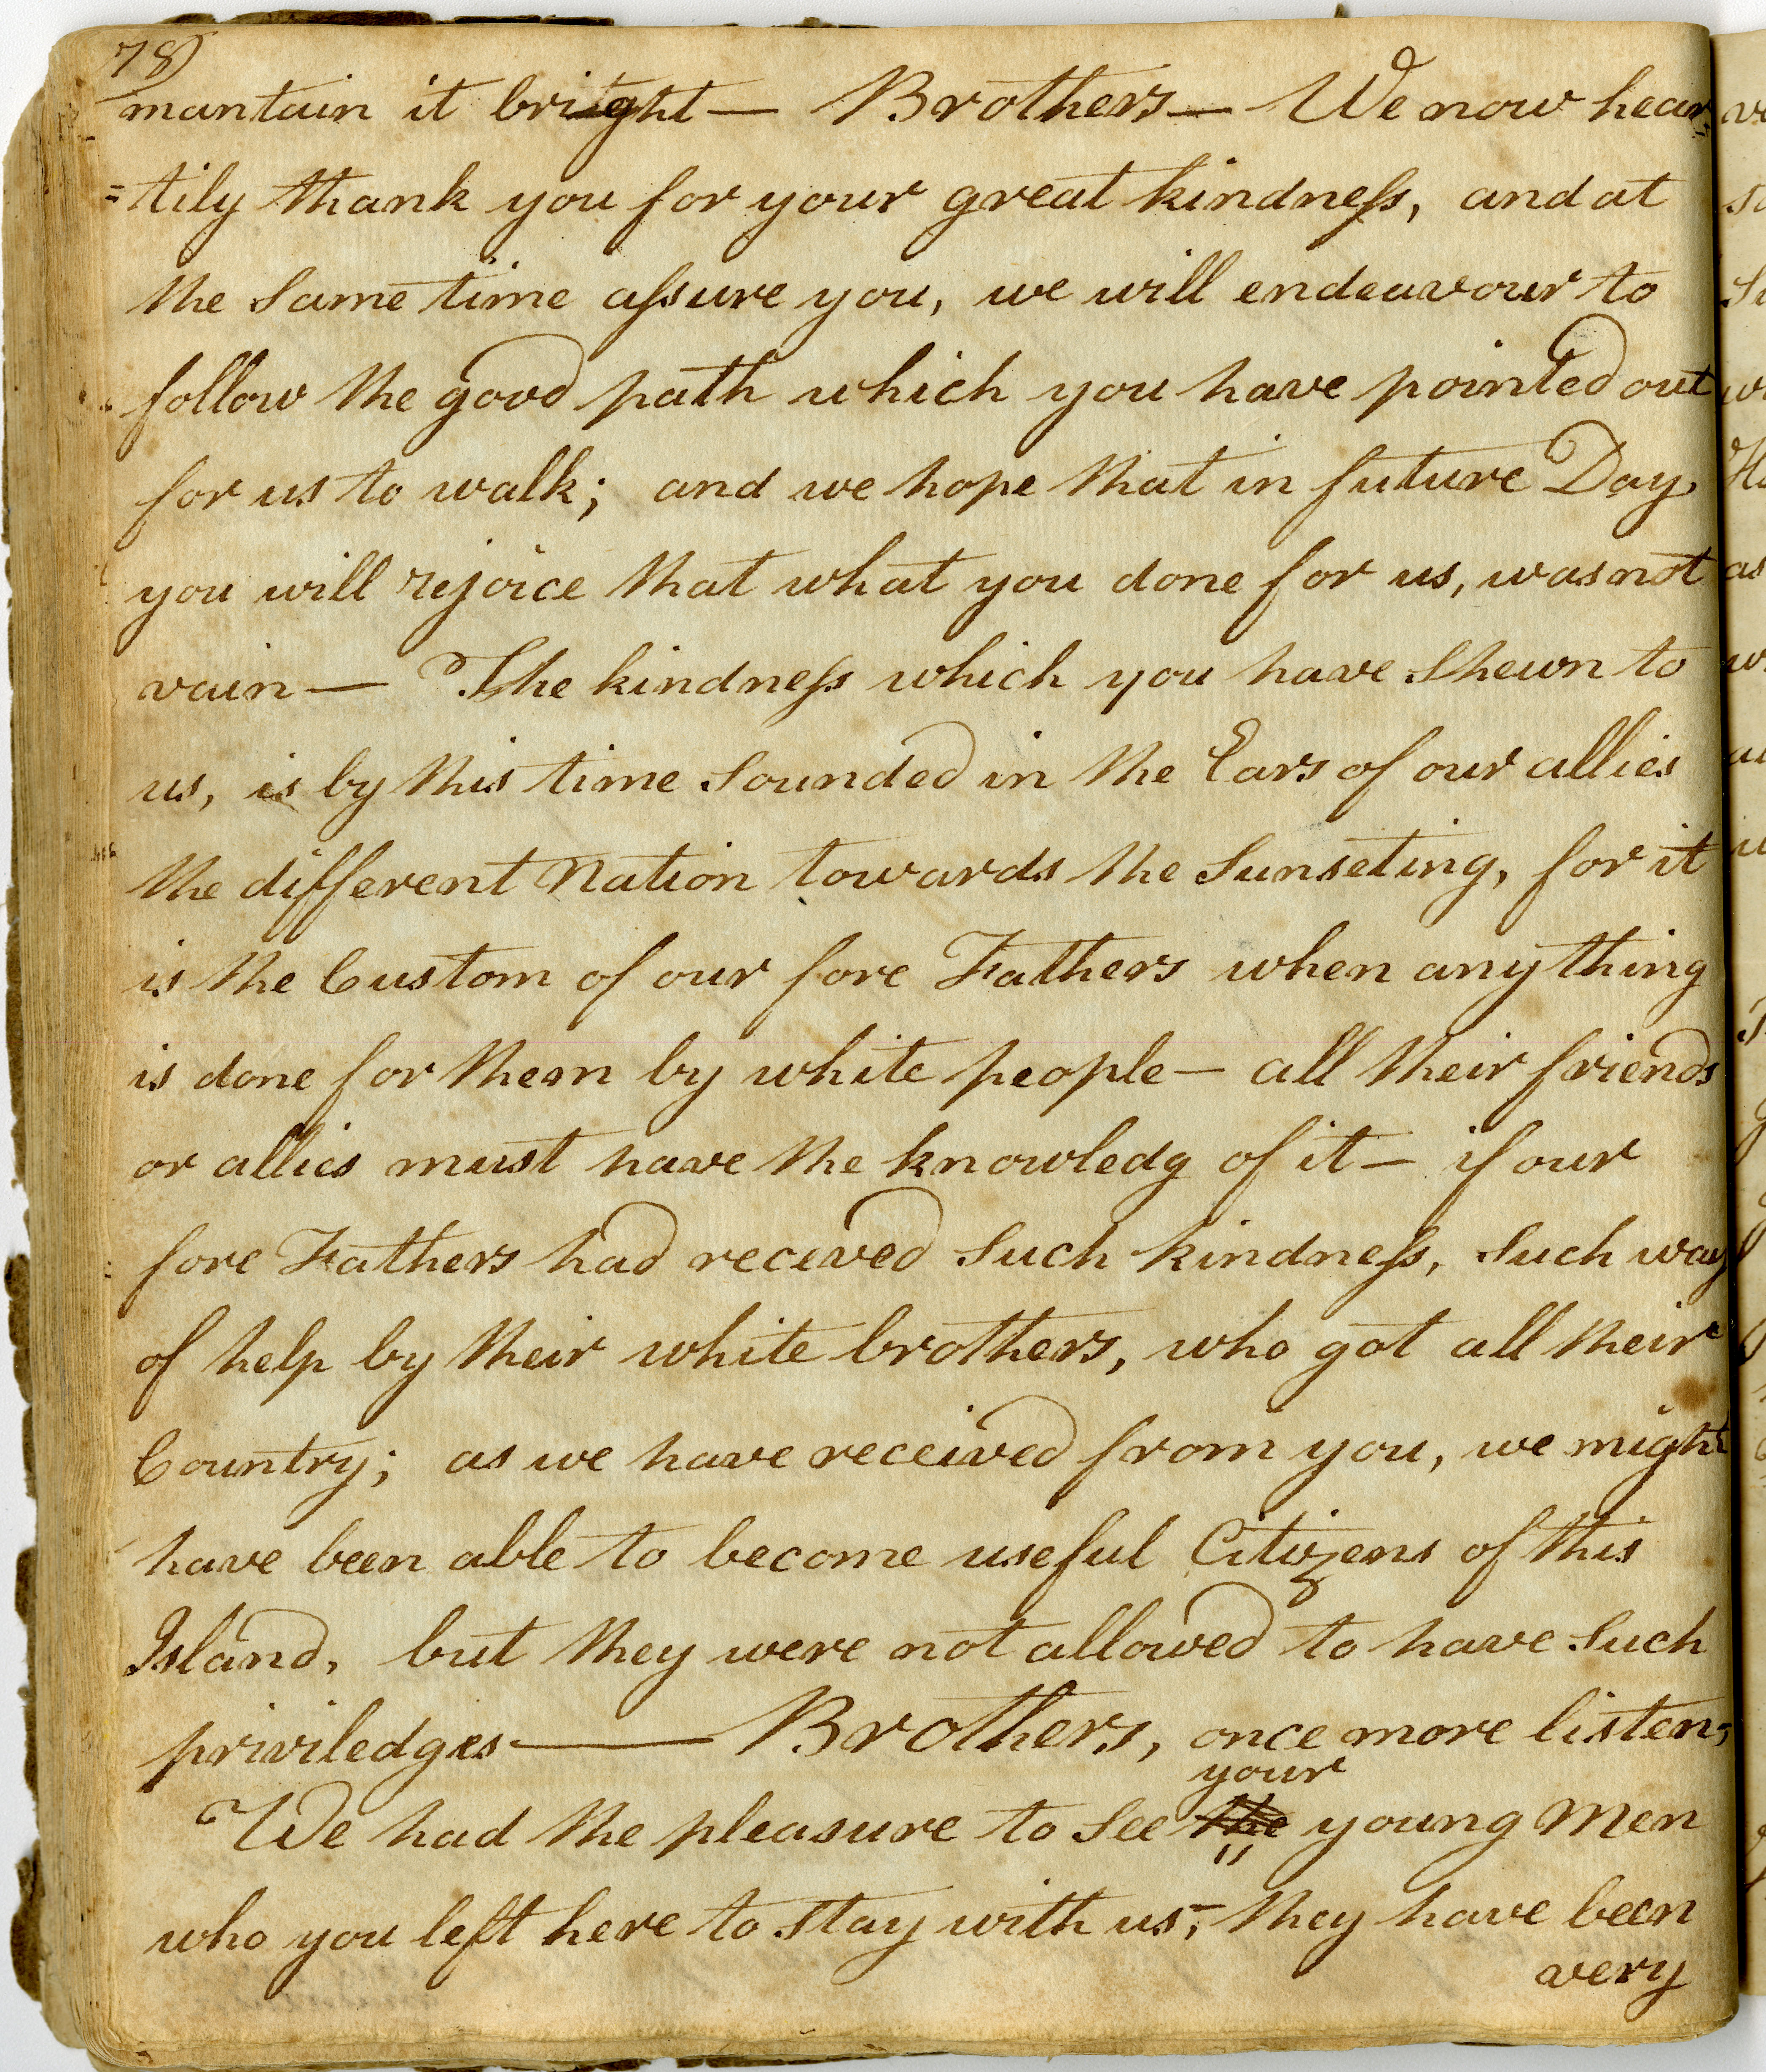 78)
mantain it bright — Brothers — We now hear
=tily thank you for your great kindneſs, and at
the Same time aſsure you, we will endeavour to
follow the good path which you have pointed out
for us to walk; and we hope that in future Day,
you will rejoice that what you done for us, was not
vain — The kindneſs which you have Shewn to
us, is by this time Sounded in the Ears of our allies
the different Nation towards the Sunseting, for it
is the Custom of our fore Fathers when any thing
is done for them by white people — all their friends
or allies must have the knowledg of it — if our
fore Fathers had receved Such kindneſs, Such way
of help by their white brothers, who got all their
Country; as we have received from you, we might
have been able to become useful Citizens of this
Island, but they were not allowed to have Such
priviledges — Brothers, once more listen,
your
We had the pleasure to See the young Men
who you left here to Stay with us; they have been
very